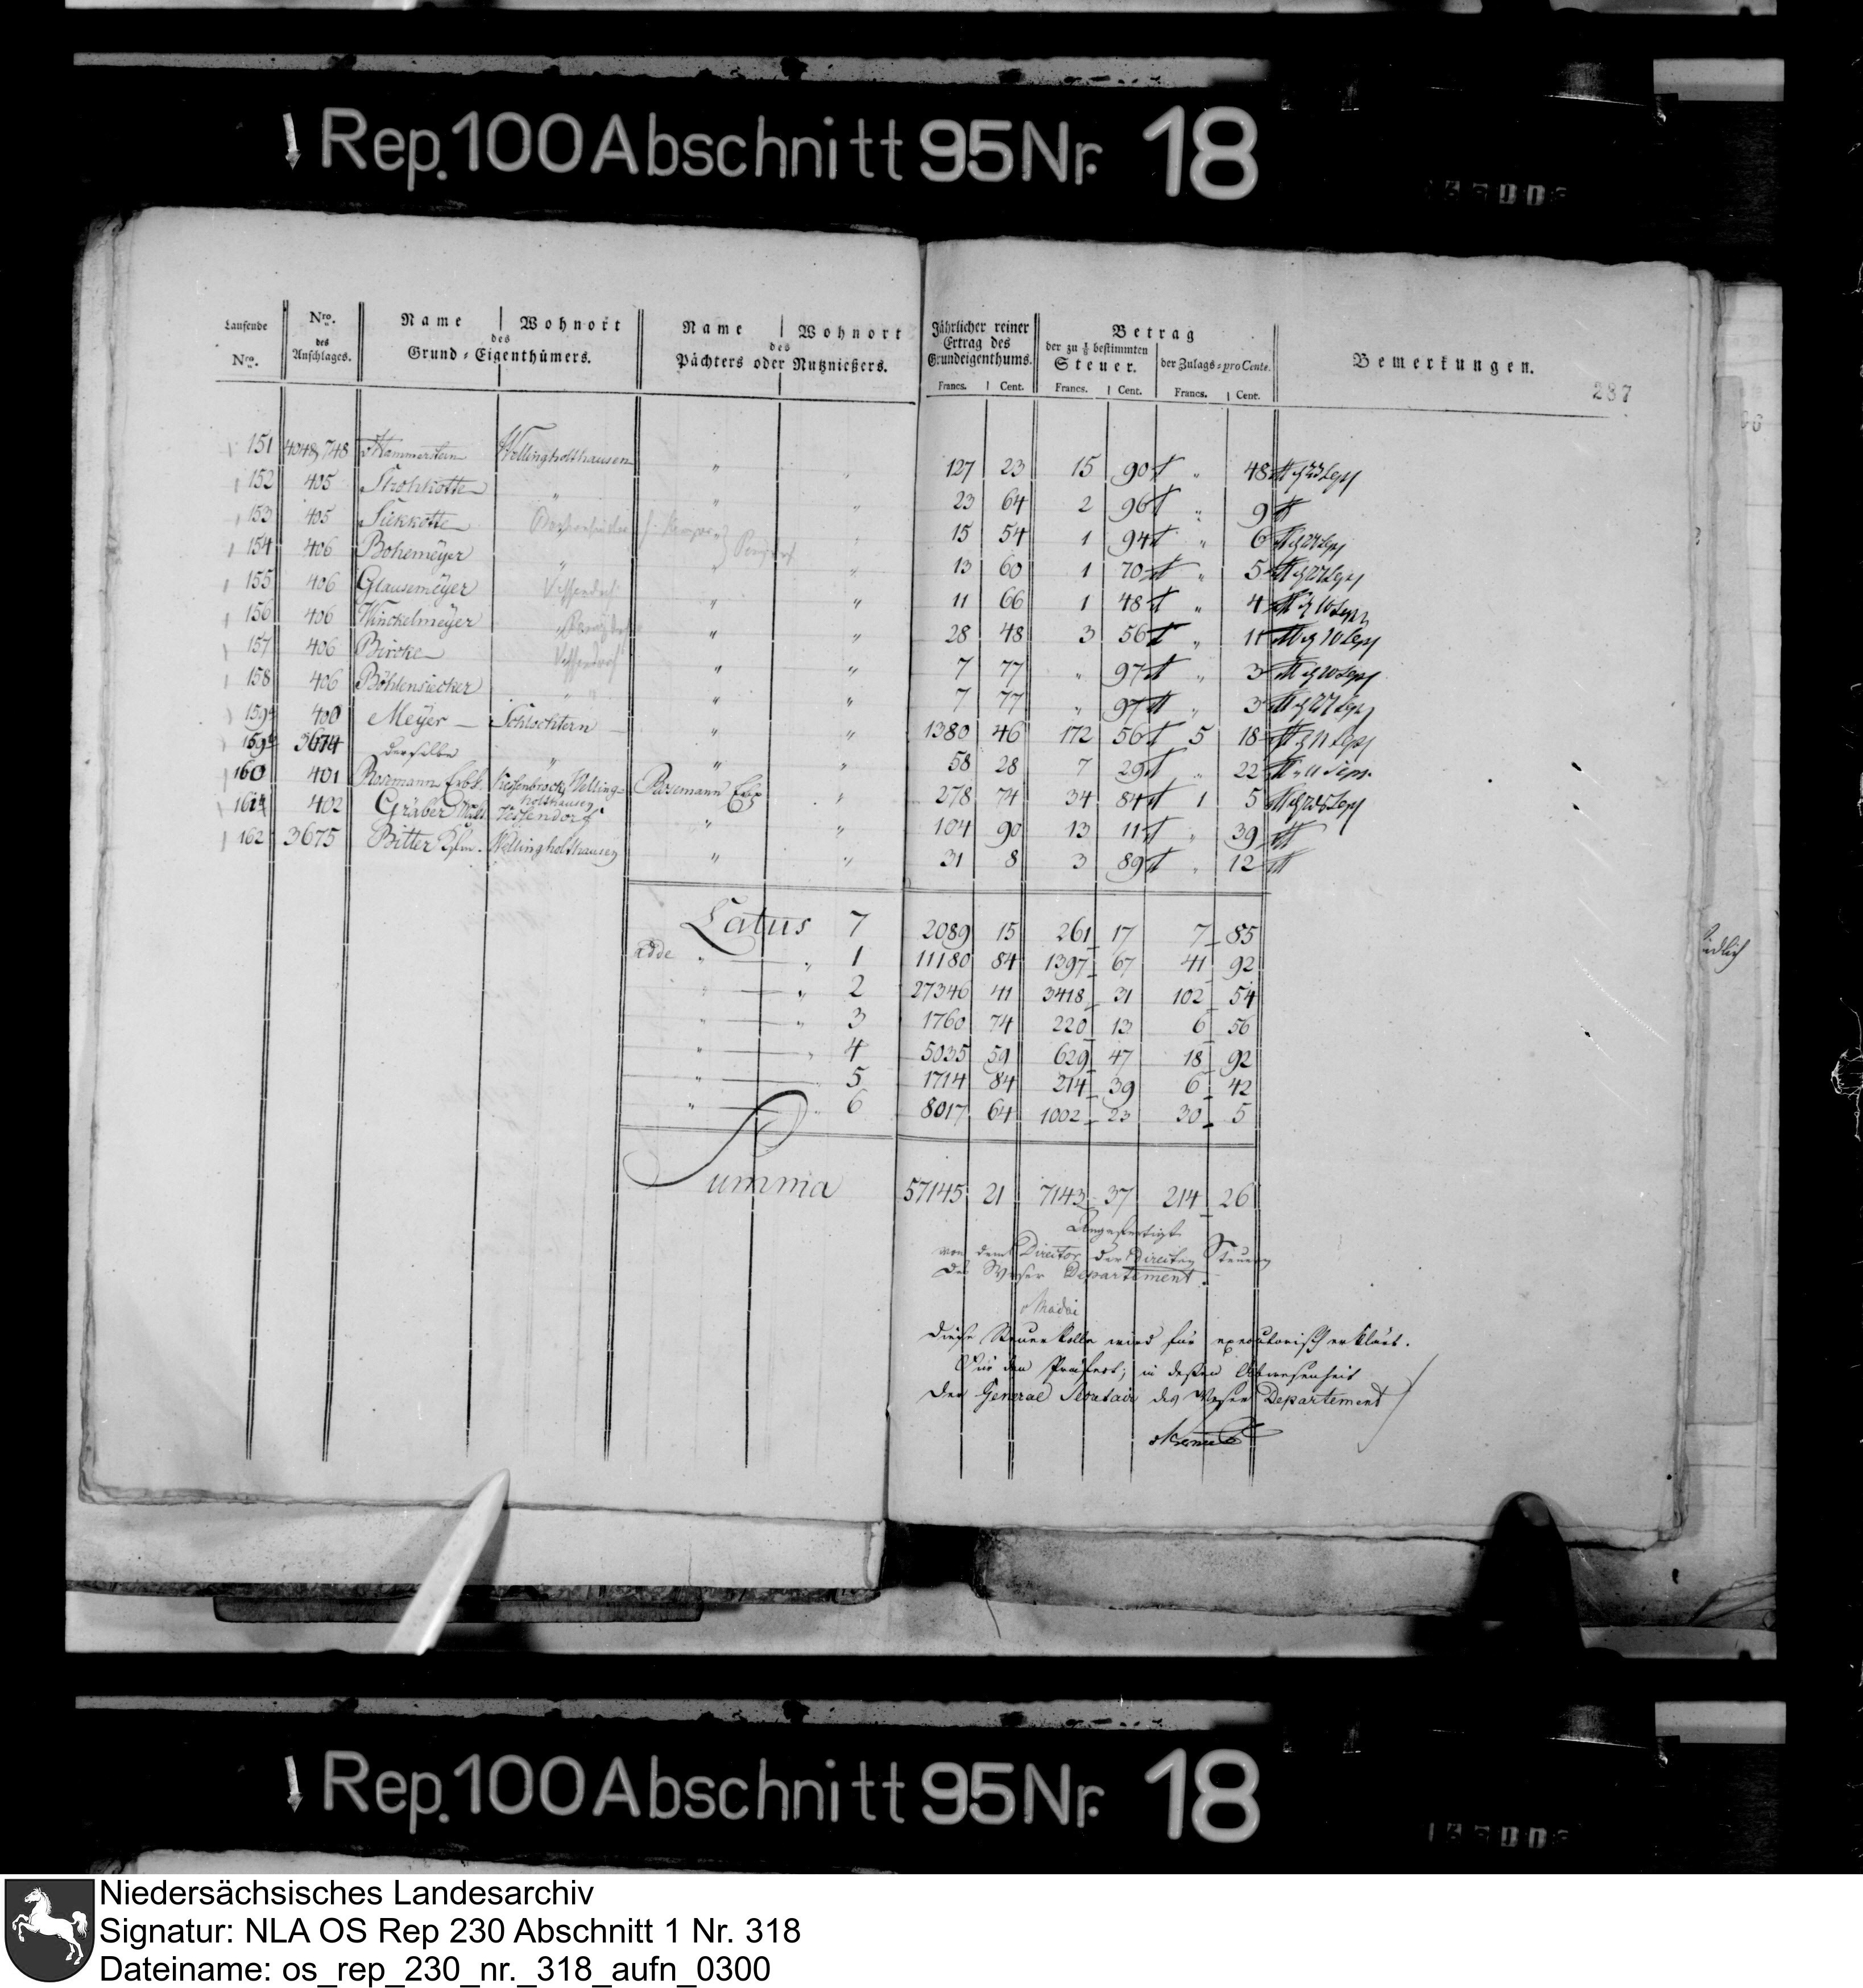 Rep. 100 Abschnitt 95 Nr. 18
Laufende Nro. | Nro. des Anschlages. | Name | Wohnort des Grund-Eigenthümers. | Name | Wohnort des Pächters oder Nutznießers. | Jährlicher reiner Ertrag des Grundeigenthums. | Betrag der zu 1/8 bestimmten Steuer. | der Zulags-pro Cente. | Bemerkungen.
Francs. | Cent. Francs. | Cent. Francs. | Cent.
287
151 4048, 748 Hammerstein Wellingholthausen " " 127 23 15 90 " 48
152 405 Strohkotte " " " 23 64 2 96 " 9
153 405 Siekkotte " " 15 54 1 94 " 6
154 406 Bohemeyer " " " 13 60 1 70 " 5
155 406 Glausemeyer " " 11 66 1 48 " 4
156 406 Winckelmeyer " " " 28 48 3 56 " 11
157 406 Biroke " " 7 77 " 97 " 3
158 406 Böhlensiecker " " " 7 77 " 97 " 3
159a 400 Meyer Schlochtern " " 1380 46 172 56 5 18
159b 3674 derselbe " " " 58 28 7 29 " 22
160 401 Wellingholthausen " 278 74 34 84 1 5
161 402 Gräber Vessendorf " " 104 90 13 11 " 39
162 3675 Bitter Wellingholthausen " " 31 8 3 89 " 12
Latus 7 2089 15 261 17 7 85
adde " " 1 11180 84 1397 67 41 92
" " 2 27346 41 3418 31 102 54
" " 3 1760 74 220 13 6 56
" " 4 5035 59 629 47 18 92
" " 5 1714 84 214 39 6 42
" " 6 8017 64 1002 23 30 5
Summa 57145 21 7143 37 214 26
Angefertigt
von dem Director der Direkten Steuern
des Weser Departement.
Diese Steuer Rolle wird für executorisch erklärt.
Für den Praefect, in deßen Abwesenheit
Der General Secretair des Weser Departement
Rep. 100 Abschnitt 95 Nr. 18
Niedersächsisches Landesarchiv
Signatur: NLA OS Rep 230 Abschnitt 1 Nr. 318
Dateiname: os_rep_230_nr._318_aufn_0300